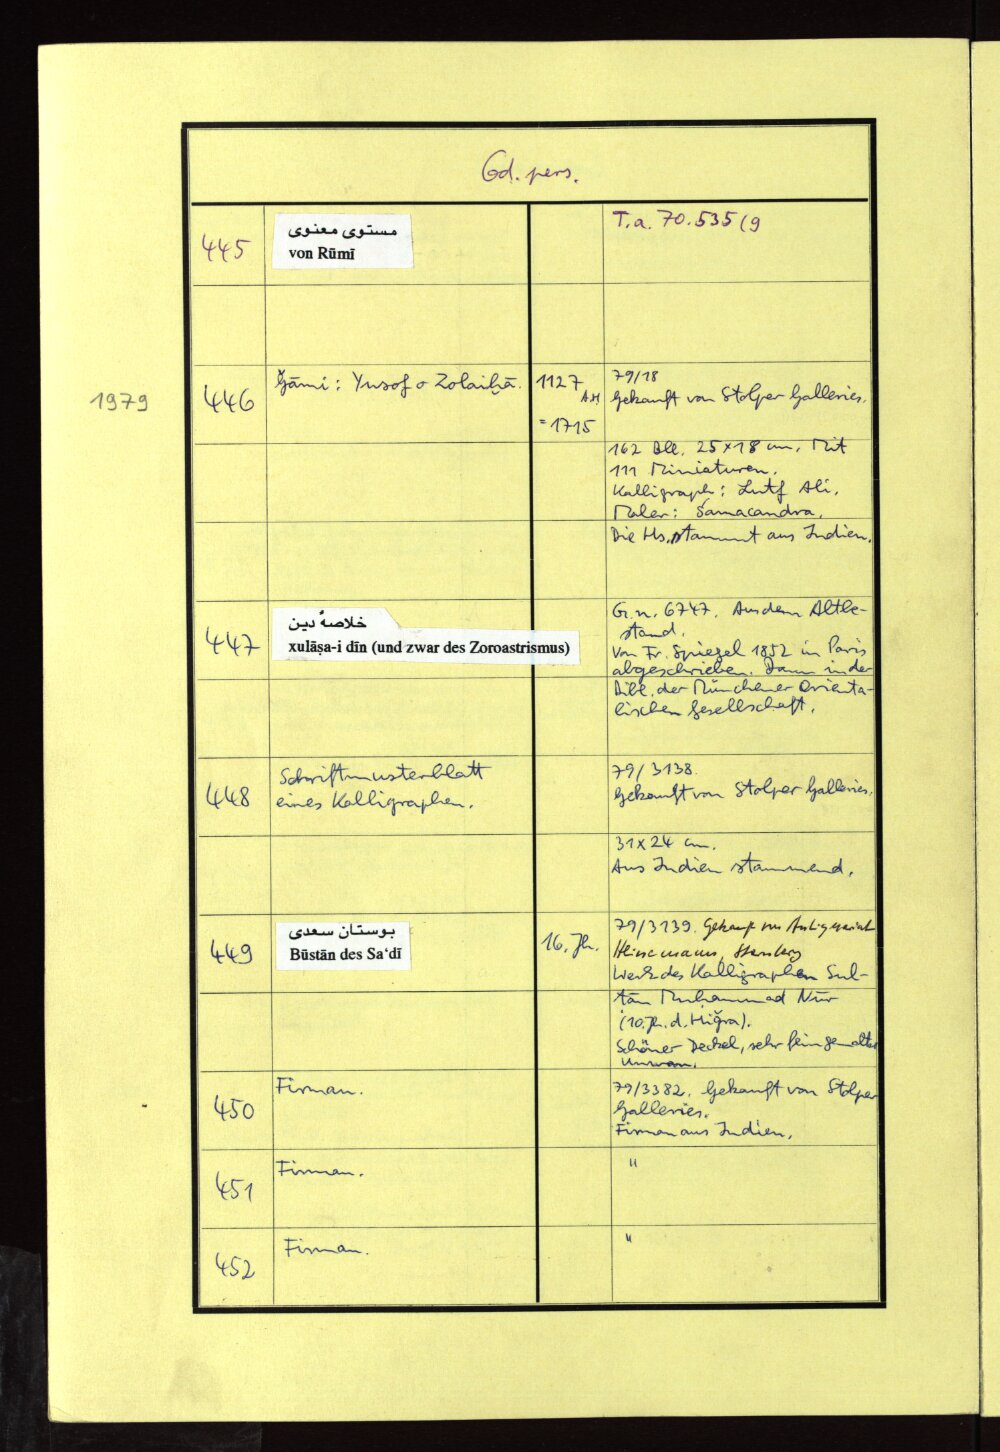 Cd. pers.
445
مستوى معنوى
von Rūmī
T.a. 70.535(9
1979
446
Ǧāmi: Yusof o Zolaiḫā.
1127
AH
=1715
79/18
Gekauft von Stolper Galleries.
162 Bll. 25x18 cm. Mit
111 Miniaturen.
Kalligraph: Lutf Ali.
Maler: Samacandra.
Die Hs. stammt aus Indien.
447
خلاصهٔ دين
xulāṣa-i dīn (und zwar des Zoroastrismus)
G.n. 6747. Aus dem Altbe-
stand.
Von Fr. Spiegel 1852 in Paris
abgeschrieben. Dann in der
Bibl. der Münchener Orienta-
lischen Gesellschaft.
448
Schriftmusterblatt
eines Kalligraphen.
79/3138.
Gekauft von Stolper Galleries.
31x24 cm.
Aus Indien stammend.
449
بوستان سعدى
Būstān des Sa‘dī
16. Jh.
79/3139. Gekauft von Antiquariat
Heinemann,
Werk des Kalligraphen Sul-
tān Muḥammad Nūr
(10. Jh. d. Hiǧra).
Schöner Deckel, sehr fein gemaltes
Unwan.
450
Firman.
79/3382. Gekauft von Stolper
Galleries.
Firman aus Indien.
451
Firman.
"
452
Firman.
"